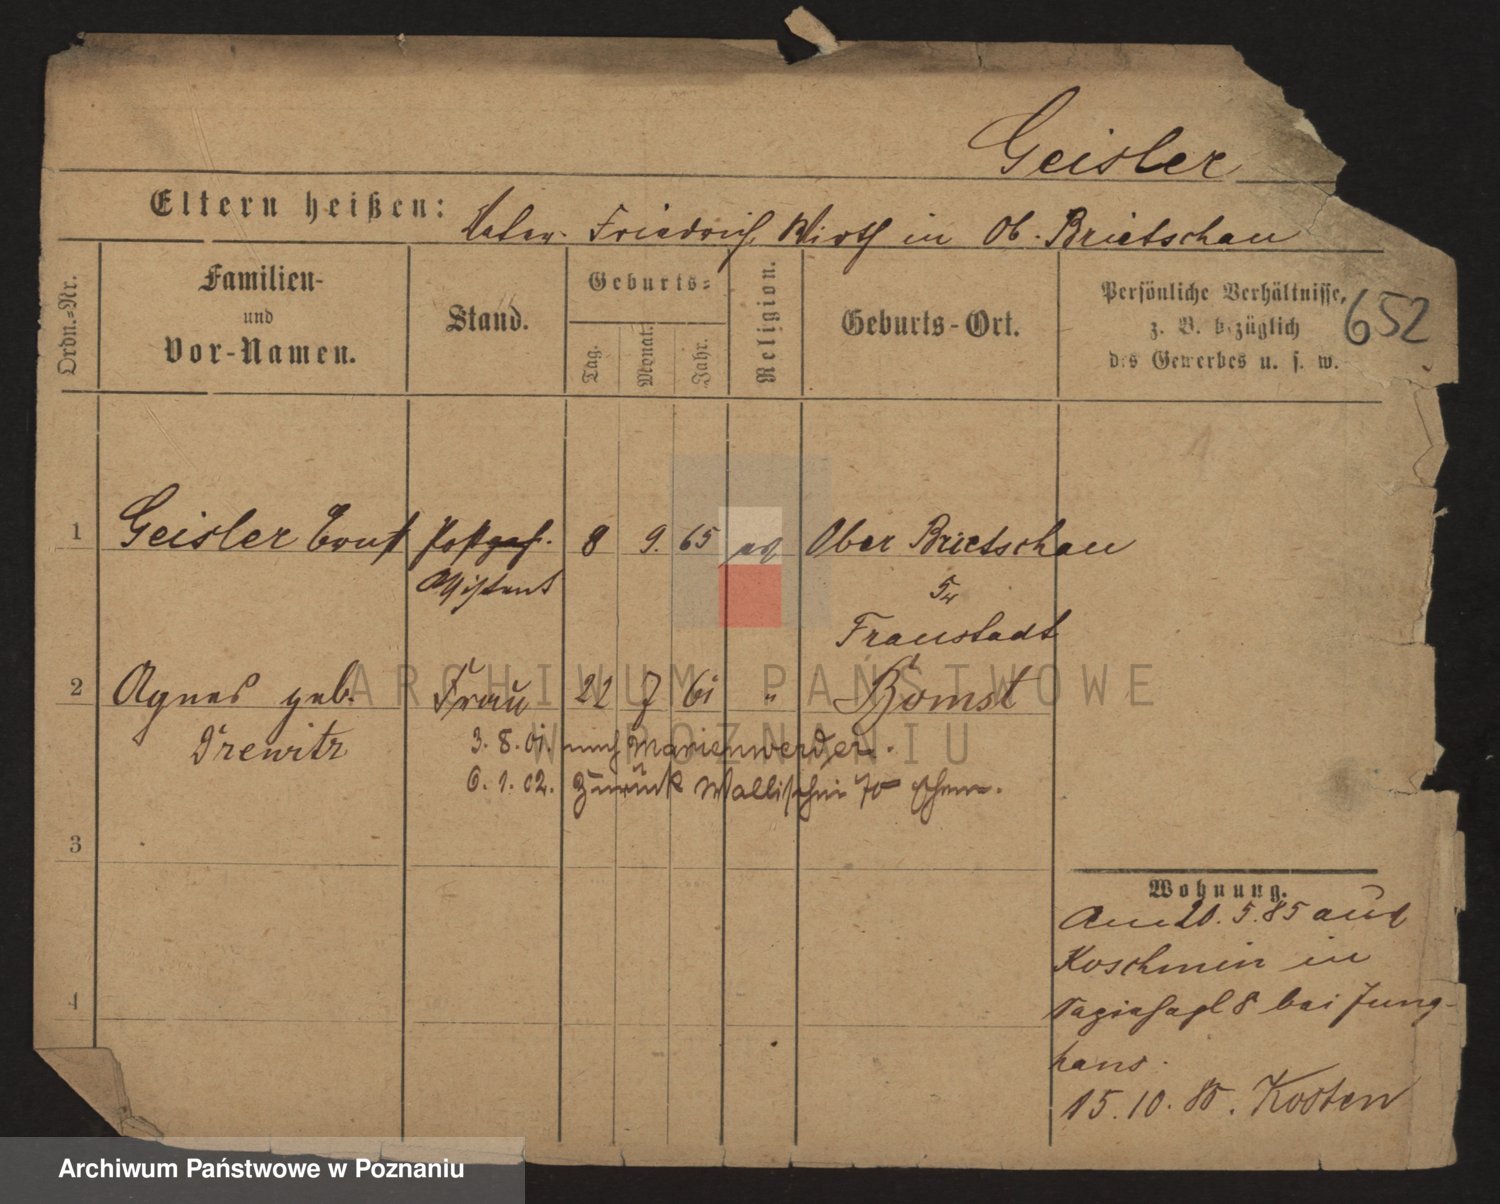 Geisler
Eltern heißen: Vater. Friedrich Wirth in Ob. Brietschau
Ordn.-Nr.
Familien-
und
Vor-Namen.
Stand.
Geburts-
Tag.
Monat.
Jahr.
Religion.
Geburts-Ort.
Persönliche Verhältnisse,
z. B. bezüglich
des Gewerbes u. s. w.
652
1 Geisler Ernst Postgeh. 8 9. 65 Ober Brietschau
Assistent
Fraustadt
2 Agnes geb. Frau 22 7 61 " Bomst
Drewitz
3. 8. 01. nach Marienwerder.
6. 1. 02. Zurück Wallischei 70
3
4
Wohnung.
Am 20. 5. 85 aus
Koschmin in
8 bei Jung-
hans.
15. 10. 85. Kosten
ARCHIWUM PAŃSTWOWE
W POZNANIU
Archiwum Państwowe w Poznaniu